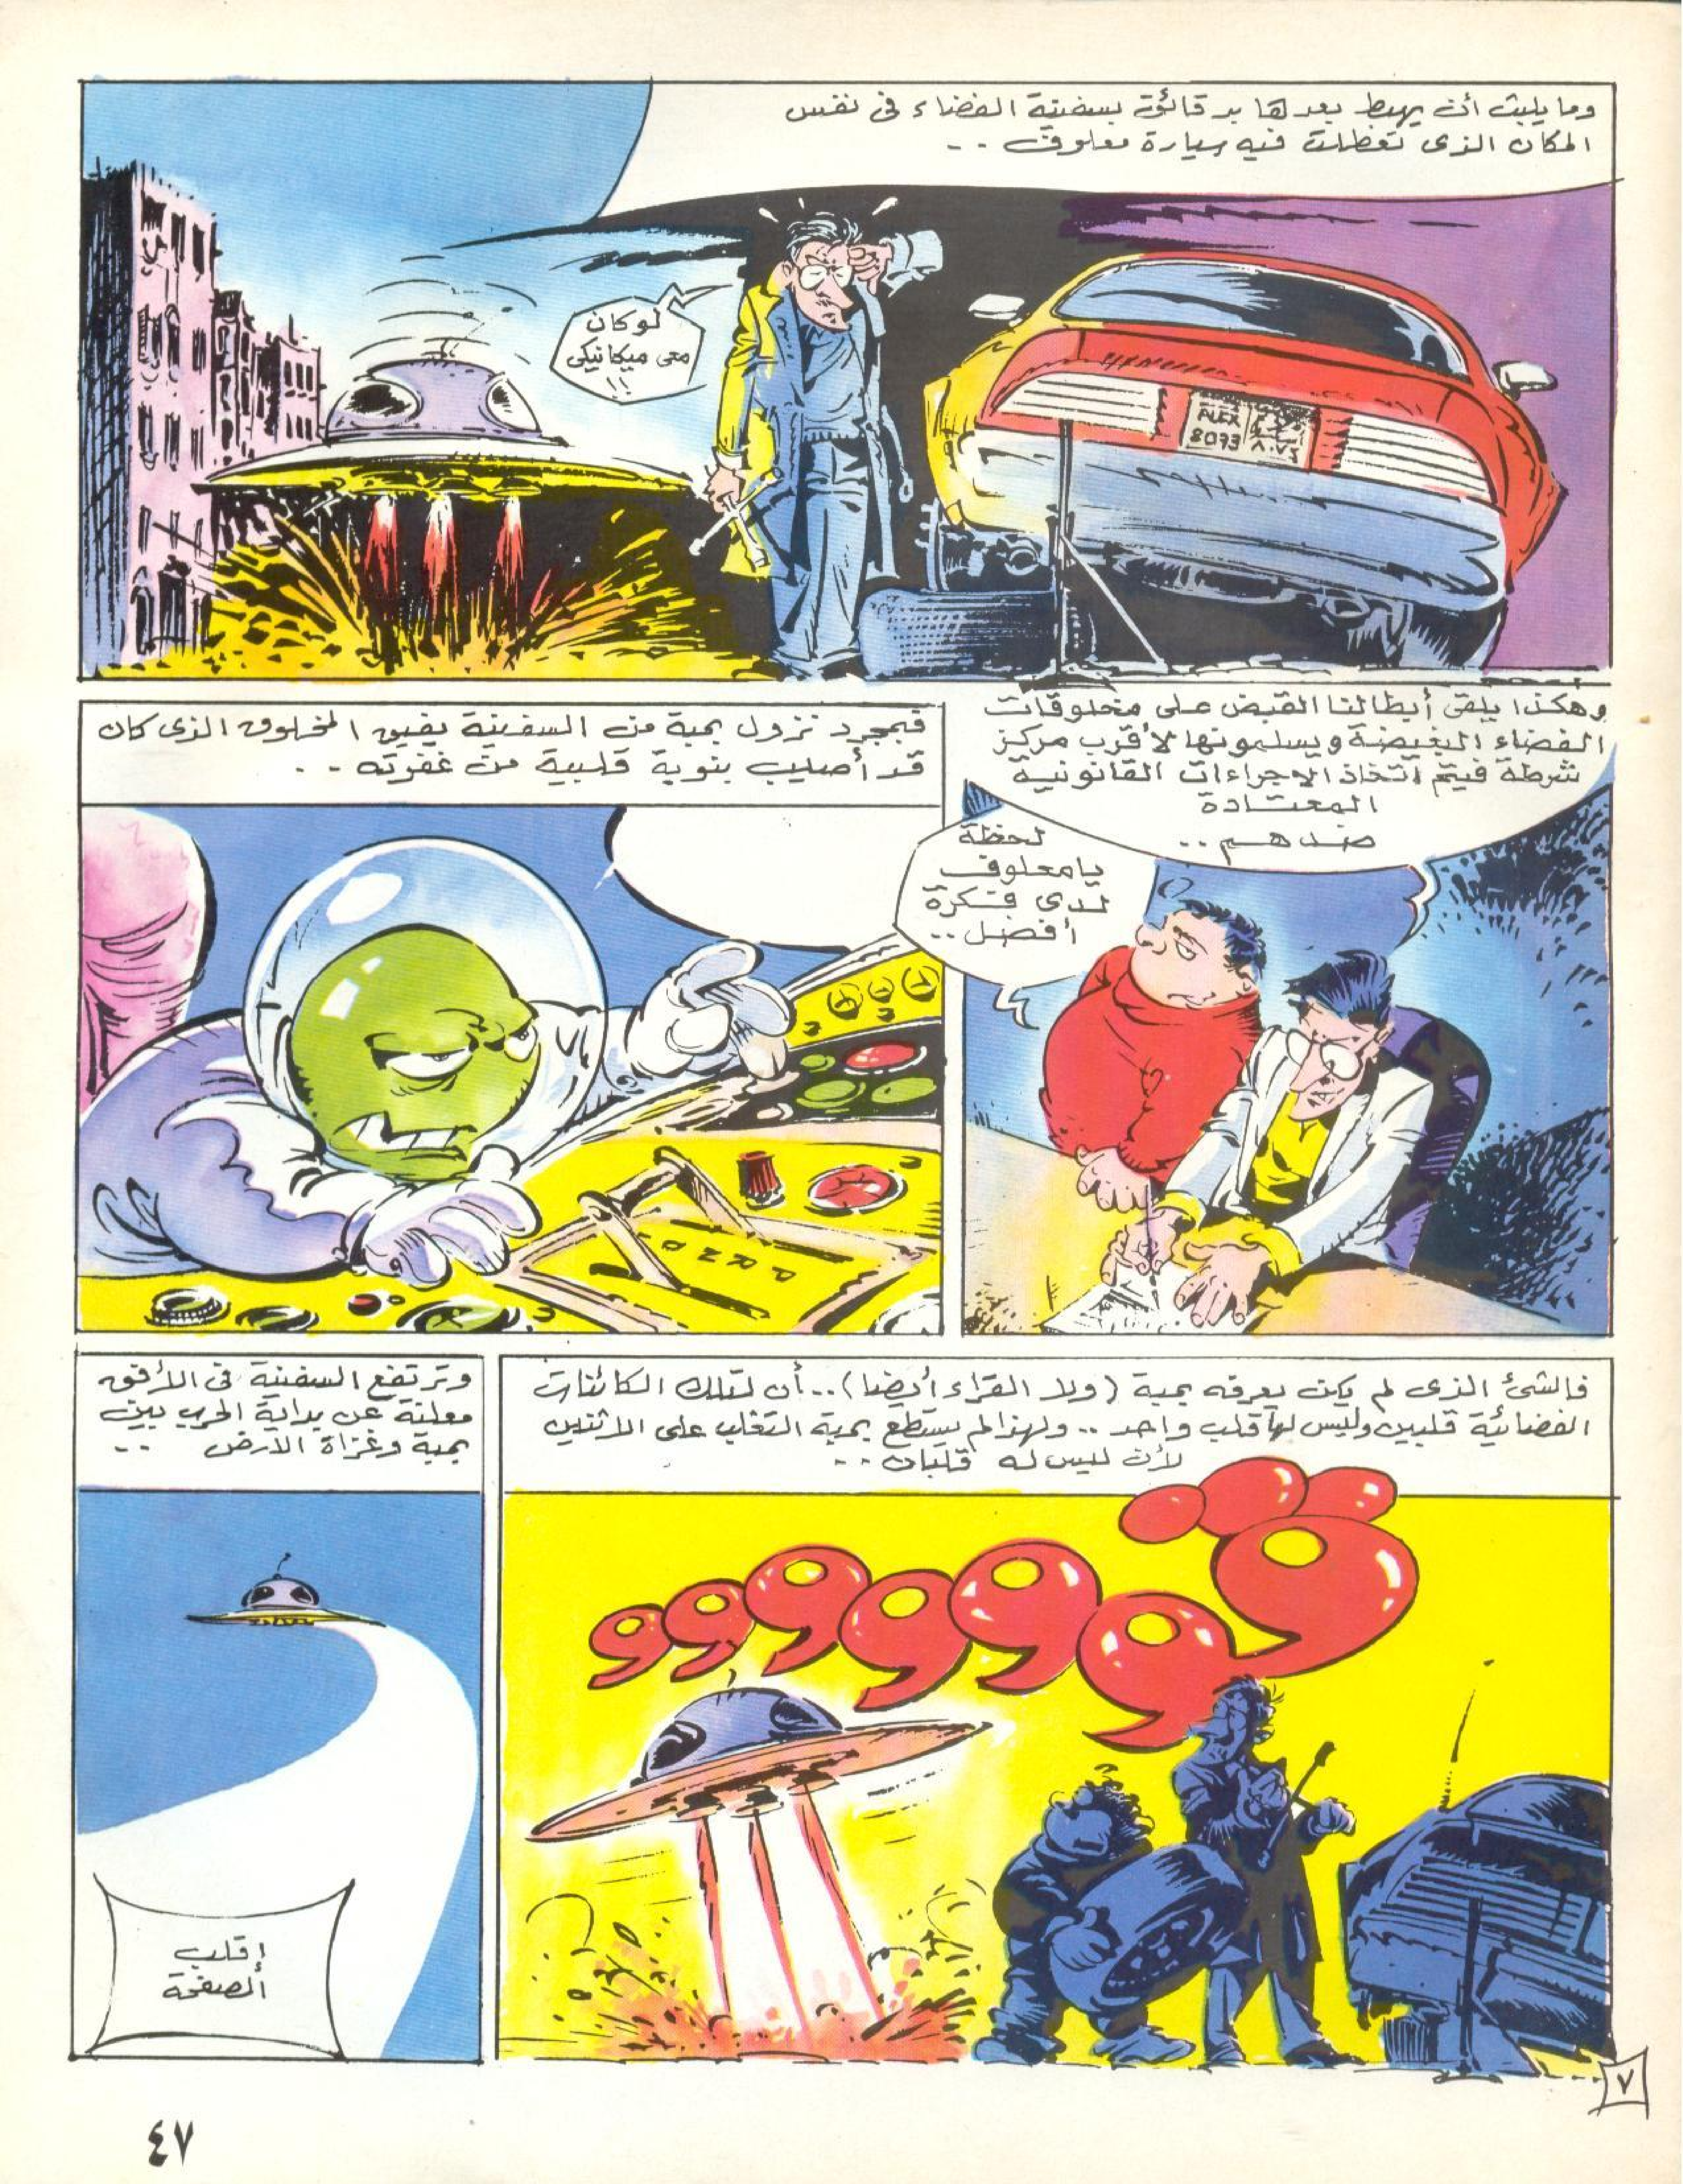 وما يلبث أن يهبط بعدها بدقائق بسفينة الفضاء فى نفس
المكان الذى تعطلت فيه سيارة معلوف ..
لو كان
معى ميكانيكى
!!
ALEX
8073
وهكذا يلقى أبطالنا القبض على مخلوقات
الفضاء البغيضة ويسلمونها لأقرب مركز
شرطة فيتم اتخاذ الإجراءات القانونية
المعتادة
ضدهم ..
لحظة
يا معلوف
لدى فكرة
أفضل ..
فبمجرد نزول بمبة من السفينة يفيق المخلوق الذى كان
قد أصيب بنوبة قلبية من غفوته ..
P R N D
فالشئ الذى لم يكن يعرفه بمبة (ولا القراء أيضا) .. أن لتلك الكائنات
الفضائية قلبين وليس لها قلب واحد .. ولهذا لم يستطع بمبة التغلب على الاثنين
لأن ليس له قلبان ..
ڤووووووو
وترتفع السفينة فى الأفق
معلنة عن بداية الحرب بين
بمبة وغزاة الأرض ..
إقلب
الصفحة
٧
٤٧